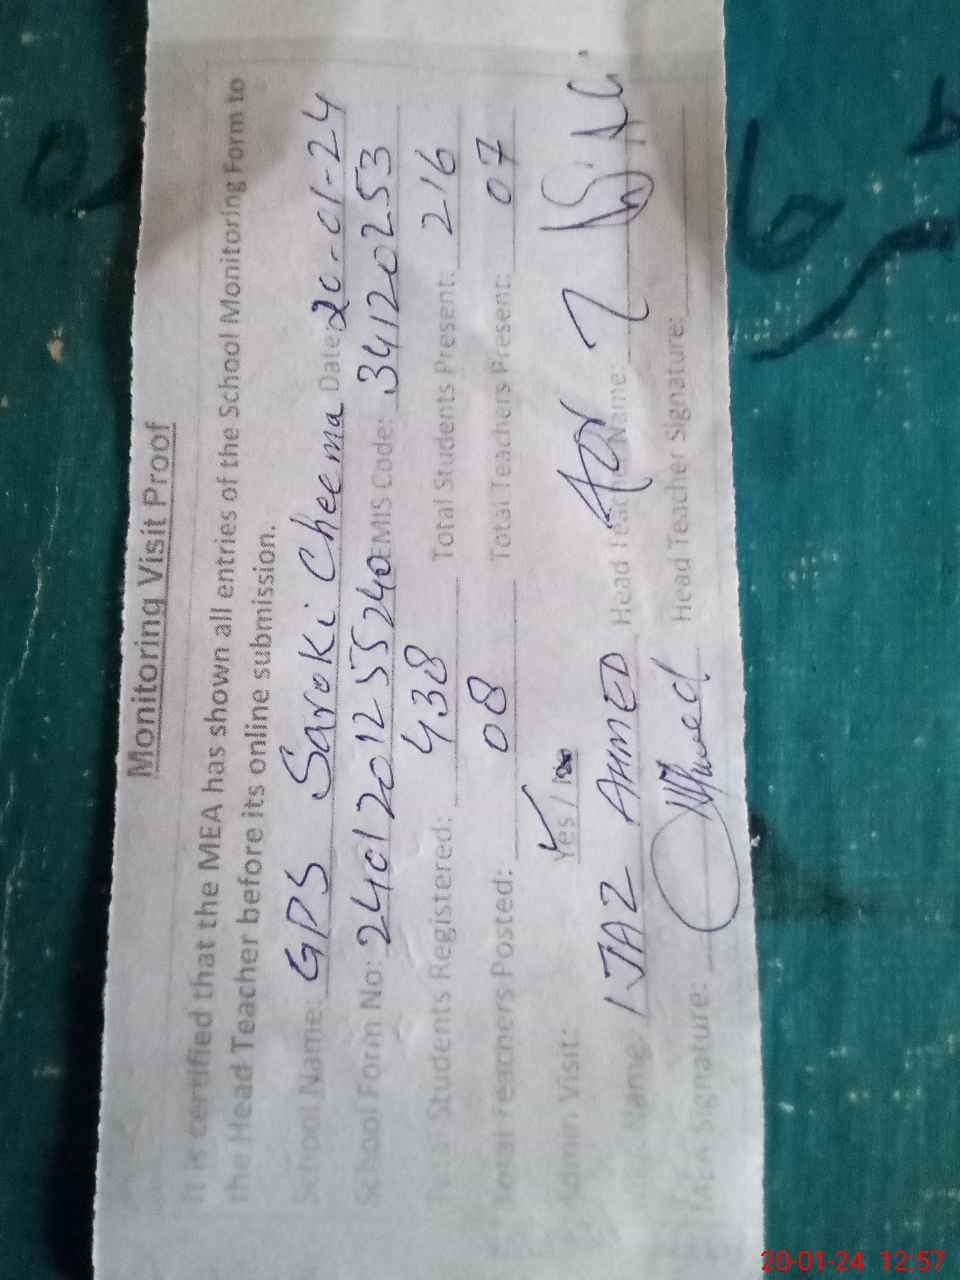 Monitoring Visit Proof
It is certified that the MEA has shown all entries of the School Monitoring Form to
the Head Teacher before its online submission.
School Name: GPS Saroki Cheema Date: 20-01-24
School Form No: 2401201255240 EMIS Code: 34120253
Total Students Registered: 438 Total Students Present: 216
Total Teachers Posted: 08 Total Teachers Present: 07
Admin Visit: Yes /
Name: IJAZ AHMED Head Teacher Name:
MEA Signature: Head Teacher Signature:
20-01-24 12:57